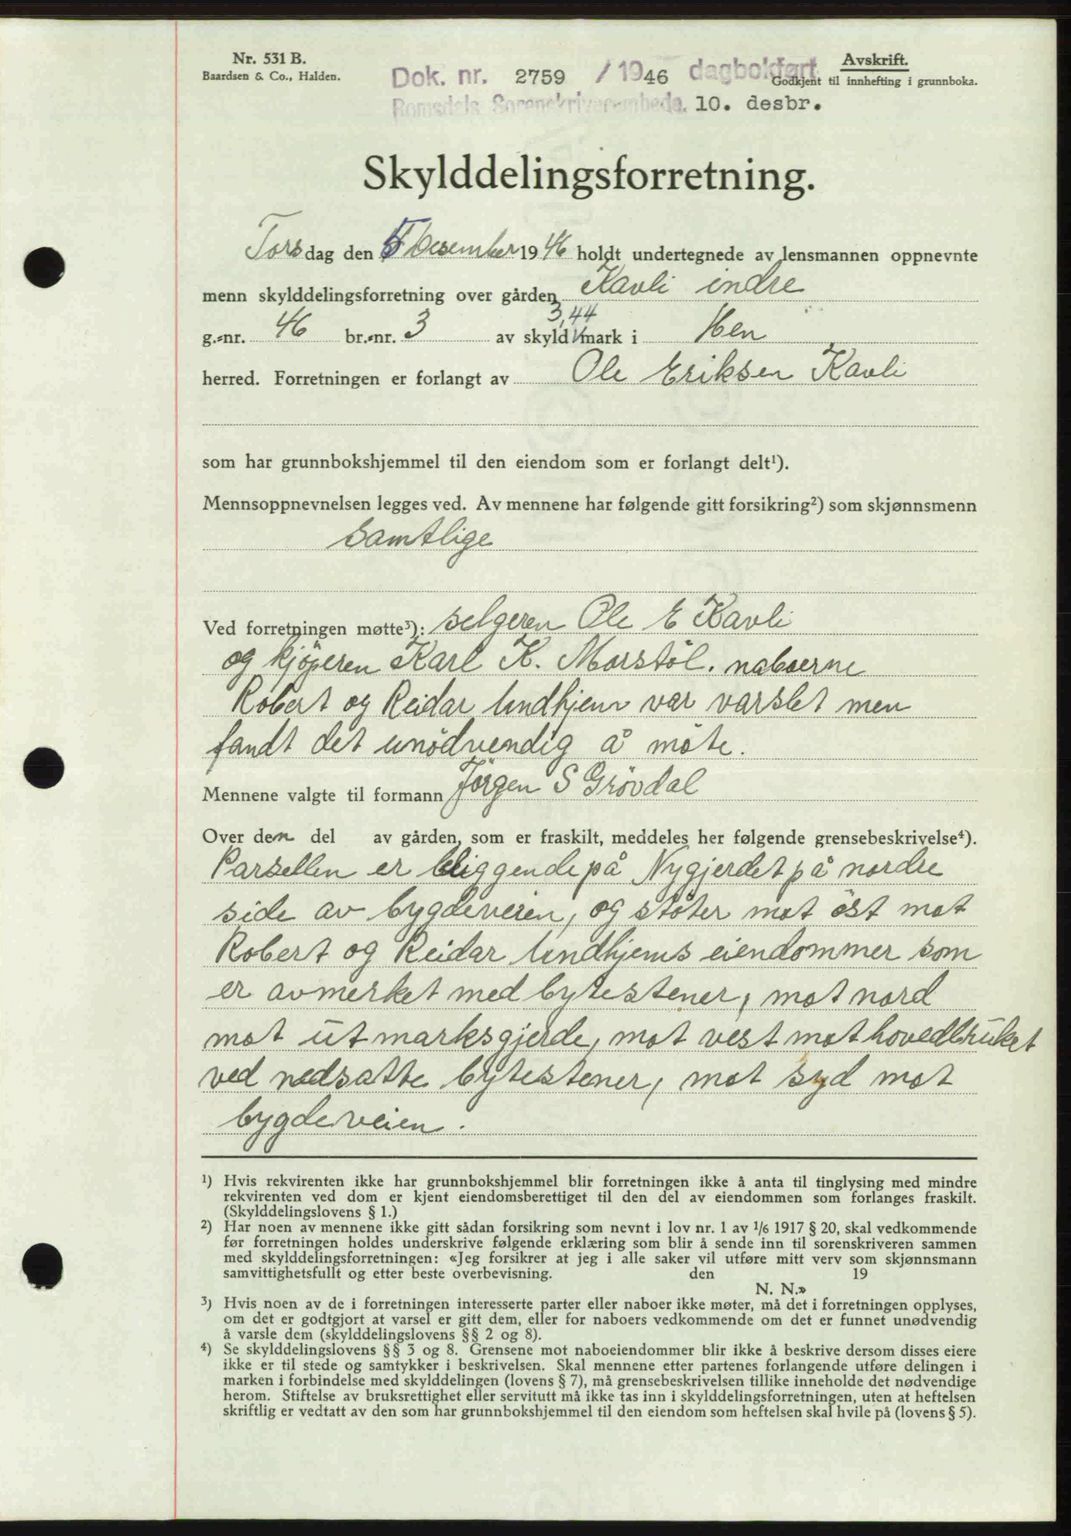 Nr. 531 B.
Baardsen & Co., Halden.
Dok. nr. 2759 / 1946 dagbokført
Romsdals Sorenskriverembede. 10. desbr.
Avskrift.
Godkjent til innhefting i grunnboka.
Skylddelingsforretning.
Torsdag den 5 Desember 1946 holdt undertegnede av lensmannen oppnevnte
menn skylddelingsforretning over gården Kavli indre
g.-nr. 46 br.-nr. 3 av skyld 3,44 mark i Hen
herred. Forretningen er forlangt av Ole Eriksen Kavli
som har grunnbokshjemmel til den eiendom som er forlangt delt¹).
Mennsoppnevnelsen legges ved. Av mennene har følgende gitt forsikring²) som skjønnsmenn
samtlige
Ved forretningen møtte³): selgeren Ole E Kavli
og kjöperen Karl K. Marstöl. naboerne
Robert og Reidar Undhjem var varslet men
fandt det unödvendig å möte.
Mennene valgte til formann Jörgen S Grövdal
Over den del av gården, som er fraskilt, meddeles her følgende grensebeskrivelse⁴).
Parsellen er beliggende på Nygjerdet på nordre
side av bygdeveien, og stöter mot öst mot
Robert og Reidar Undhjems eiendommer som
er avmerket med bytestener, mot nord
mot utmarksgjerde, mot vest mot hovedbruket
ved nedsatte bytestener, mot syd mot
bygdeveien.
¹) Hvis rekvirenten ikke har grunnbokshjemmel blir forretningen ikke å anta til tinglysing med mindre
rekvirenten ved dom er kjent eiendomsberettiget til den del av eiendommen som forlanges fraskilt.
(Skylddelingslovens § 1.)
²) Har noen av mennene ikke gitt sådan forsikring som nevnt i lov nr. 1 av 1/6 1917 § 20, skal vedkommende
før forretningen holdes underskrive følgende erklæring som blir å sende inn til sorenskriveren sammen
med skylddelingsforretningen: «Jeg forsikrer at jeg i alle saker vil utføre mitt verv som skjønnsmann
samvittighetsfullt og etter beste overbevisning. den 19
N. N.»
³) Hvis noen av de i forretningen interesserte parter eller naboer ikke møter, må det i forretningen opplyses,
om det er godtgjort at varsel er gitt dem, eller for naboers vedkommende om det er funnet unødvendig
å varsle dem (skylddelingslovens §§ 2 og 8).
⁴) Se skylddelingslovens §§ 3 og 8. Grensene mot naboeiendommer blir ikke å beskrive dersom disses eiere
ikke er til stede og samtykker i beskrivelsen. Skal mennene etter partenes forlangende utføre delingen i
marken i forbindelse med skylddelingen (lovens § 7), må grensebeskrivelsen tillike inneholde det nødvendige
herom. Stiftelse av bruksrettighet eller servitutt må ikke tas inn i skylddelingsforretningen, uten at heftelsen
skriftlig er vedtatt av den som har grunnbokshjemmel til den eiendom som heftelsen skal hvile på (lovens § 5).